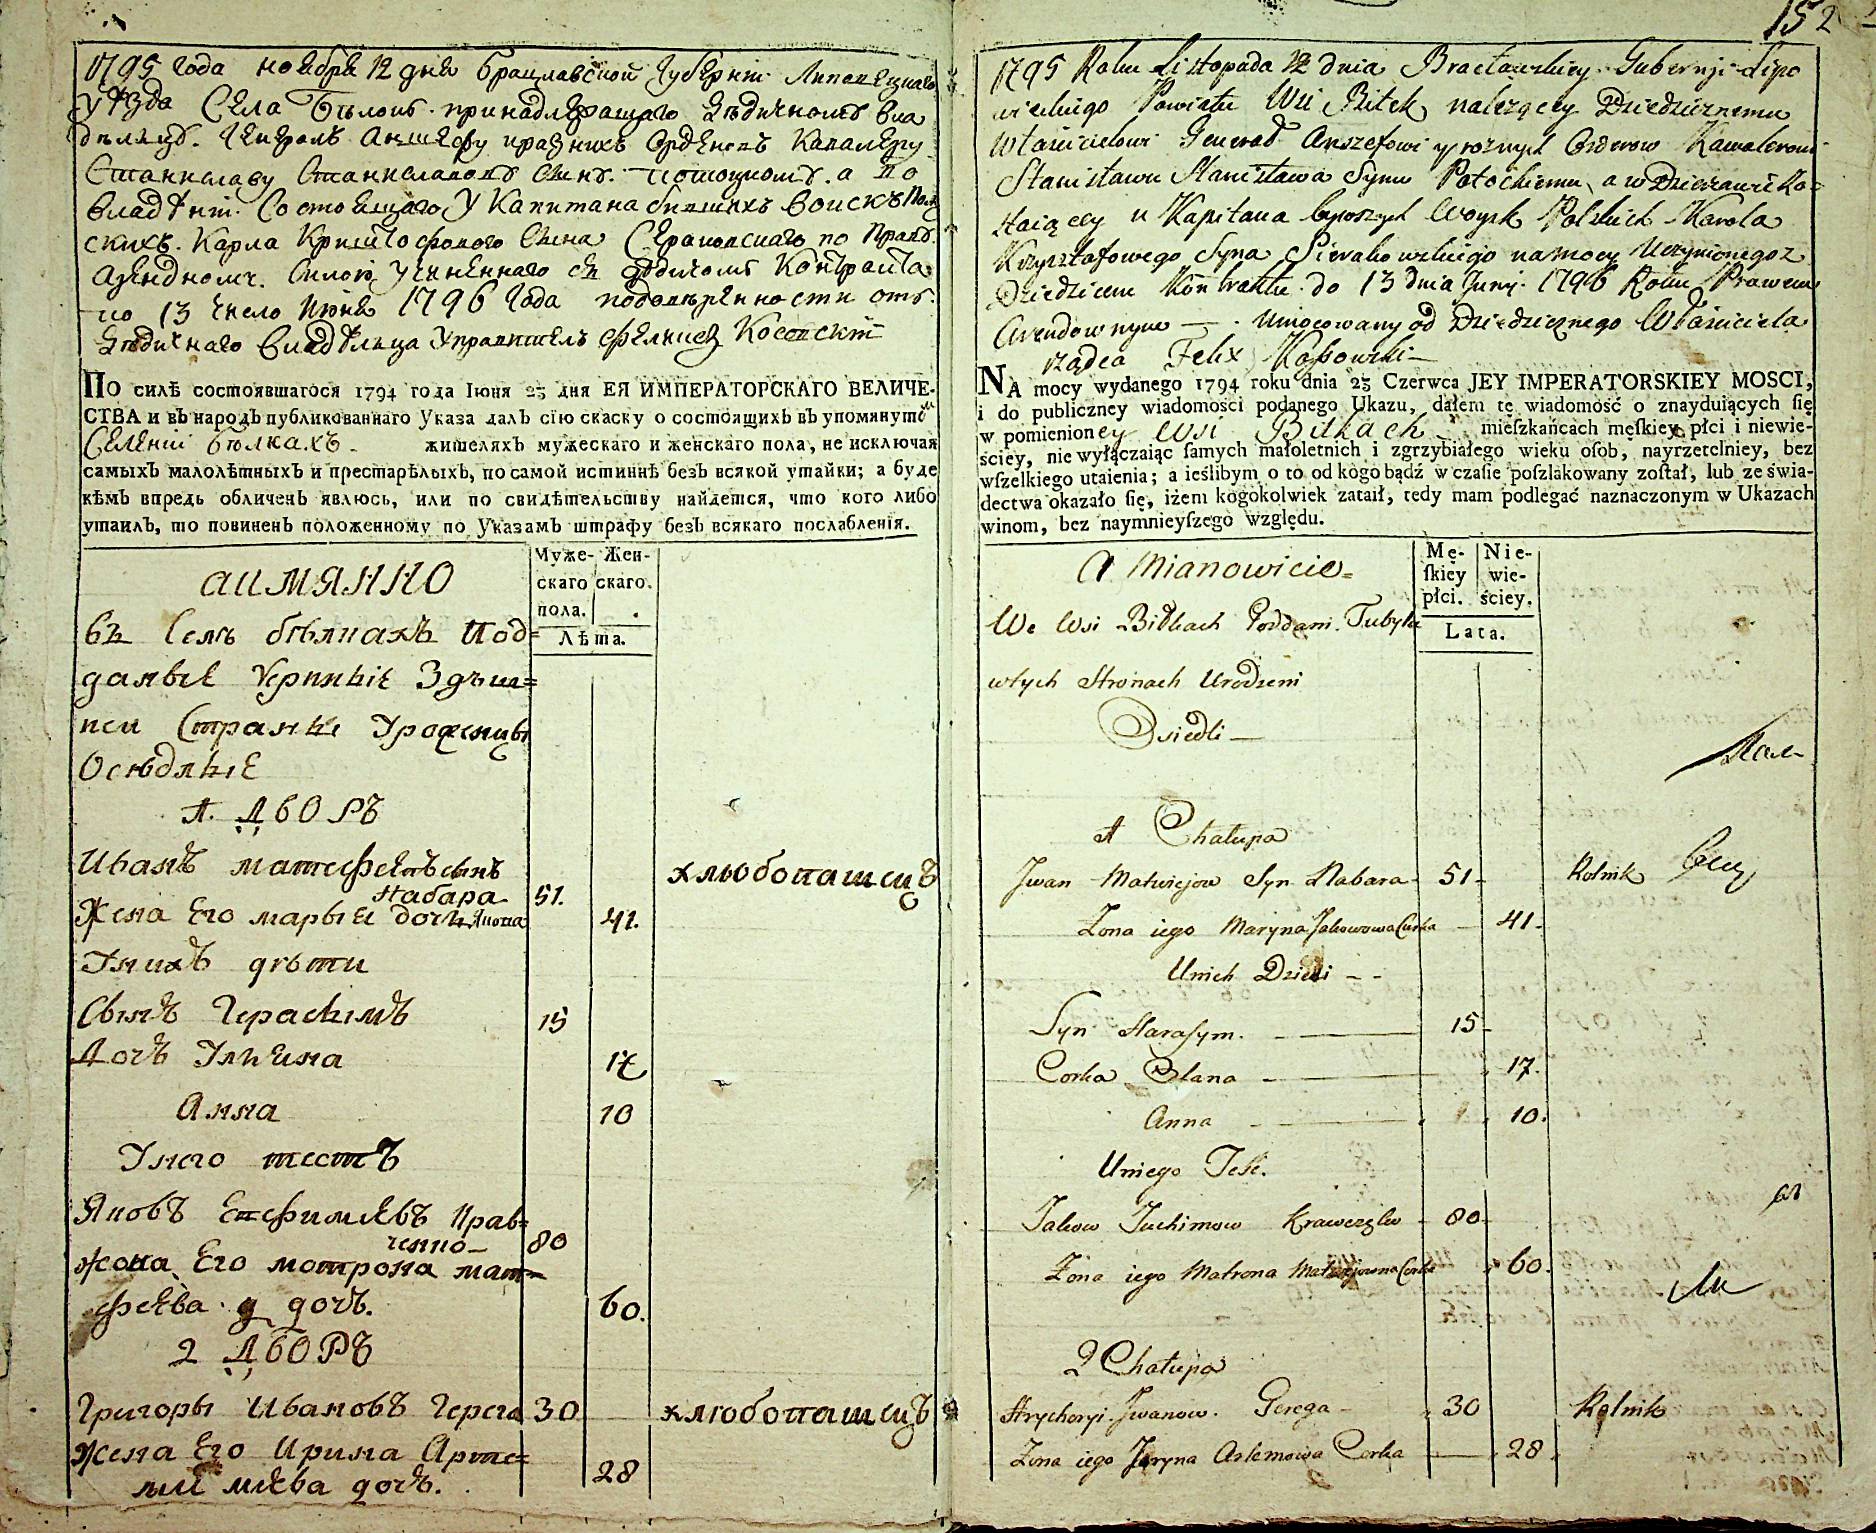 152
1795 года ноября 12 дня Брацлавской Губернїи Липовецкаго
уѣзда Села Бѣлокъ принадлежащаго вла
Генералъ Аншефу разныхъ Орденовъ Кавалеру
Станиславу Станиславовъ Сынъ Потоцкому а по
владѣнїи Состоящаго у Капитана бывшихъ Воискъ Пол
скихъ Карла Криштофового Сына по Праву
Арендному Силою учиненнаго съ Контракта
по 13 число Июня 1796 года подовѣренности отъ
владѣльца Управитель Феликсъ Косовскїй
По силѣ состоявшагося 1794 года Іюня 23 дня ЕЯ ИМПЕРАТОРСКАГО ВЕЛИЧЕ-
СТВА и въ народъ публикованнаго Указа далъ сїю скаску о состоящихъ въ упомянутом
Селенїи Бѣлкахъ жителяхъ мужескаго и женскаго пола, не исключая
самыхъ малолѣтныхъ и престарѣлыхъ, по самой истиннѣ безъ всякой утайки; а буде
кѣмъ впредь обличенъ явлюсь, или по свидѣтельству найдется, что кого либо
утаилъ, то повиненъ положенному по Указамъ штрафу безъ всякаго послабленїя.
Муже- Жен-
скаго скаго.
пола.
Лѣта.
АИМЯННО
въ Селѣ бѣлкахъ Под=
даные
Странъ Уроженцы
Осѣдлые
1. ДВОРЪ
Иванъ матфеевъ сынъ
Набара 51. хлѣбопашецъ
Жена Его марыя дочь 41.
Унихъ дѣти
Сынъ Герасимъ 15
Дочъ 17
Анна 10
Унего тесть
Яковъ Ефимьевъ Крав=
ченко 80
жона Его мотрона мат=
феева дочъ. 60.
2 ДВОРЪ
Григоры Ивановъ Герега 30 хлѣбопашецъ
Жена Его Ирина Арте=
мьева дочъ. 28
1795 Roku Listopada 12 dnia Bracławskiey Gubernji Lipo
wieckiego Powiatu Wsi Biłek należącey Dziedzicznemu
Właścicielowi Generał Anszefowi y rożnych Orderow Kawalerowi
Stanisławu Stanisława Synu Potockiemu, a w Dzierżawie Zo=
staiącey u Kapitana bywszych Woysk Polskich Karola
Krzysztofowego Syna Sierakowskiego na mocy Uczynionego z
Dziedzicem Kontraktu do 13 dnia Junij 1796 Roku Prawem
Arendownym — Umocowany od Dziedzicznego Właściciela
rządca Felix Kossowski
NA mocy wydanego 1794 roku dnia 23 Czerwca JEY IMPERATORSKIEY MOSCI,
i do publiczney wiadomości podanego Ukazu, dałem tę wiadomość o znayduiących ſię
w pomienioney Wsi Biłkach mieſzkańcach męſkiey płci i niewie-
ściey, nie wyłączaiąc ſamych małoletnich i zgrzybiałego wieku oſob, nayrzetelniey, bez
wſzelkiego utaienia; a ieślibym o to od kogo bądź w czaſie poſzlakowany został, lub ze świa-
dectwa okazało ſię, iżem kogokolwiek zataił, tedy mam podlegać naznaczonym w Ukazach
winom, bez naymnieyſzego względu.
Mę- Nie-
ſkiey wie-
płci. ściey.
Lata.
A Mianowicie=
We Wsi Biłkach Poddani Tubyl
w tych Stronach Urodzeni
Osiedli —
1 Chałupa
Jwan Matwiejow Syn Nabara 51 Rolnik
Zona iego Maryna Jakowowa Curka 41
Unich Dzieci - -
Syn Harasym. 15
Corka Olana 17.
Anna 10.
Uniego Teść.
Jakow Juchimow Krawczęko 80
Zona iego Matrona Matwiejowna Corka 60.
2 Chałupa
Hryhoryi Jwanow. Gerega 30 Rolnik
Zona iego Jryna Artemowa Corka 28